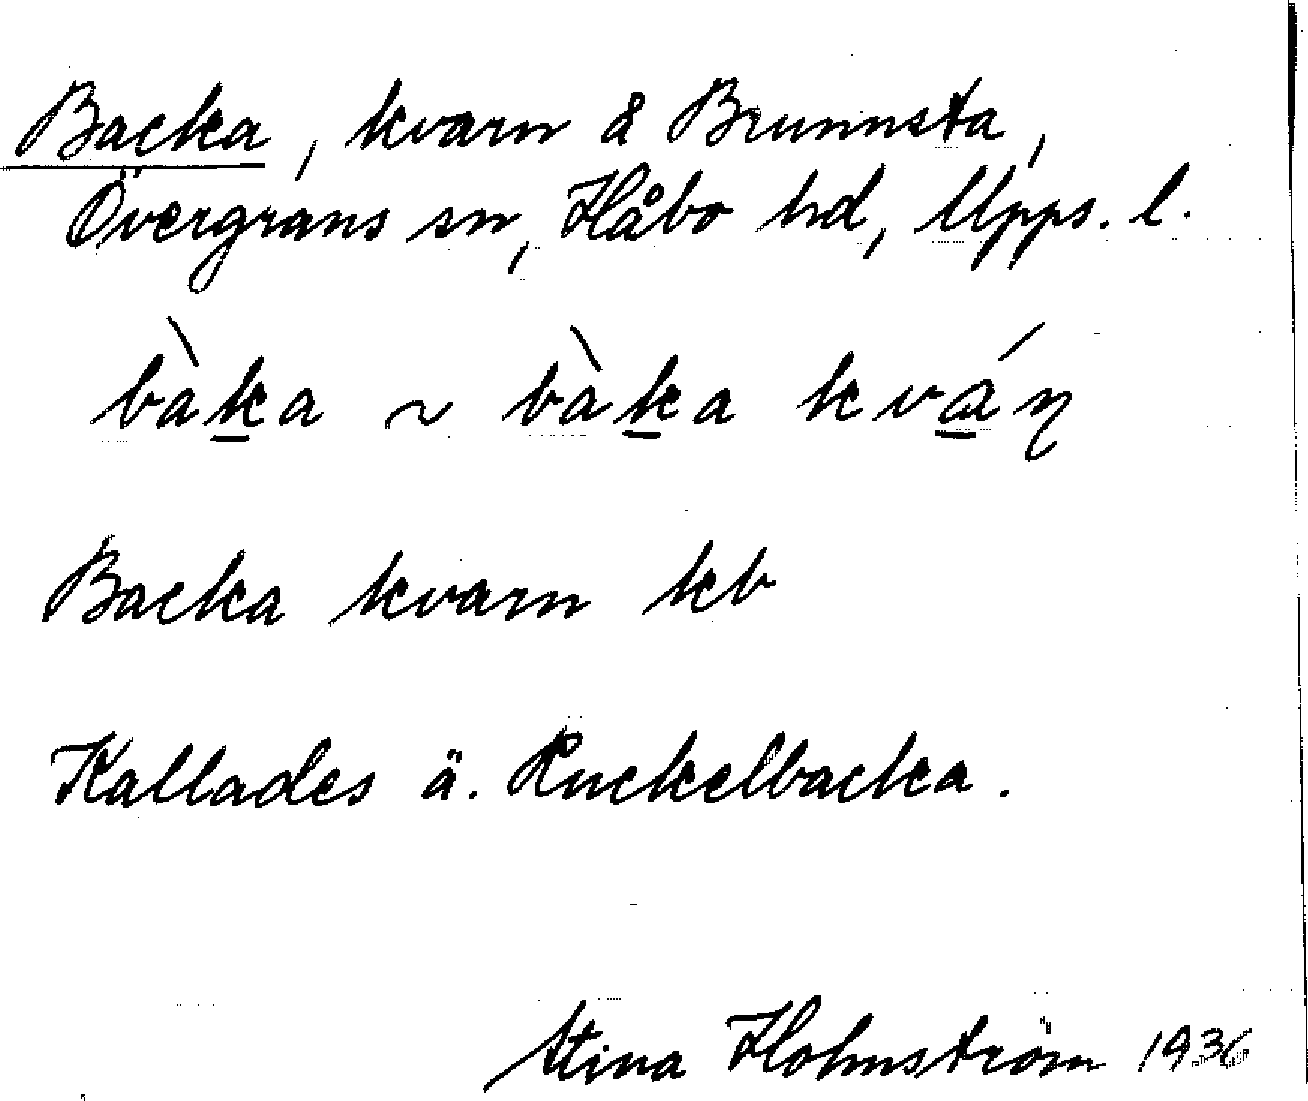 Backa, kvarn å Brunnsta,
Övergrans sn, Håbo hd, Upps. l.
bàka ~ bàka kváɳ
Backa kvarn kb
Kallades ä. Ruckelbacka.
Stina Holmström 1936